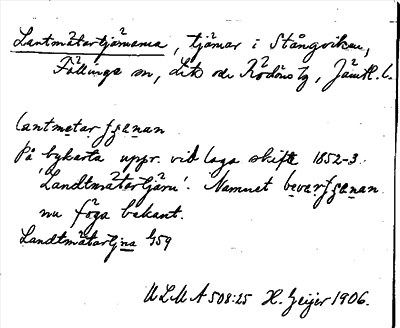 Lantmätartjärnarna, tjärnar i Stångviken,
Föllinge sn, dito och Rödöns tg, Jämtl. l.
lantmetar
På bykarta uppr. vid laga skifte 1852-3
'Landtmätartjärn'. Namnet
nu föga bekant.
Landtmätartjna G59
ULMA 508:25 H. Geijer 1906.